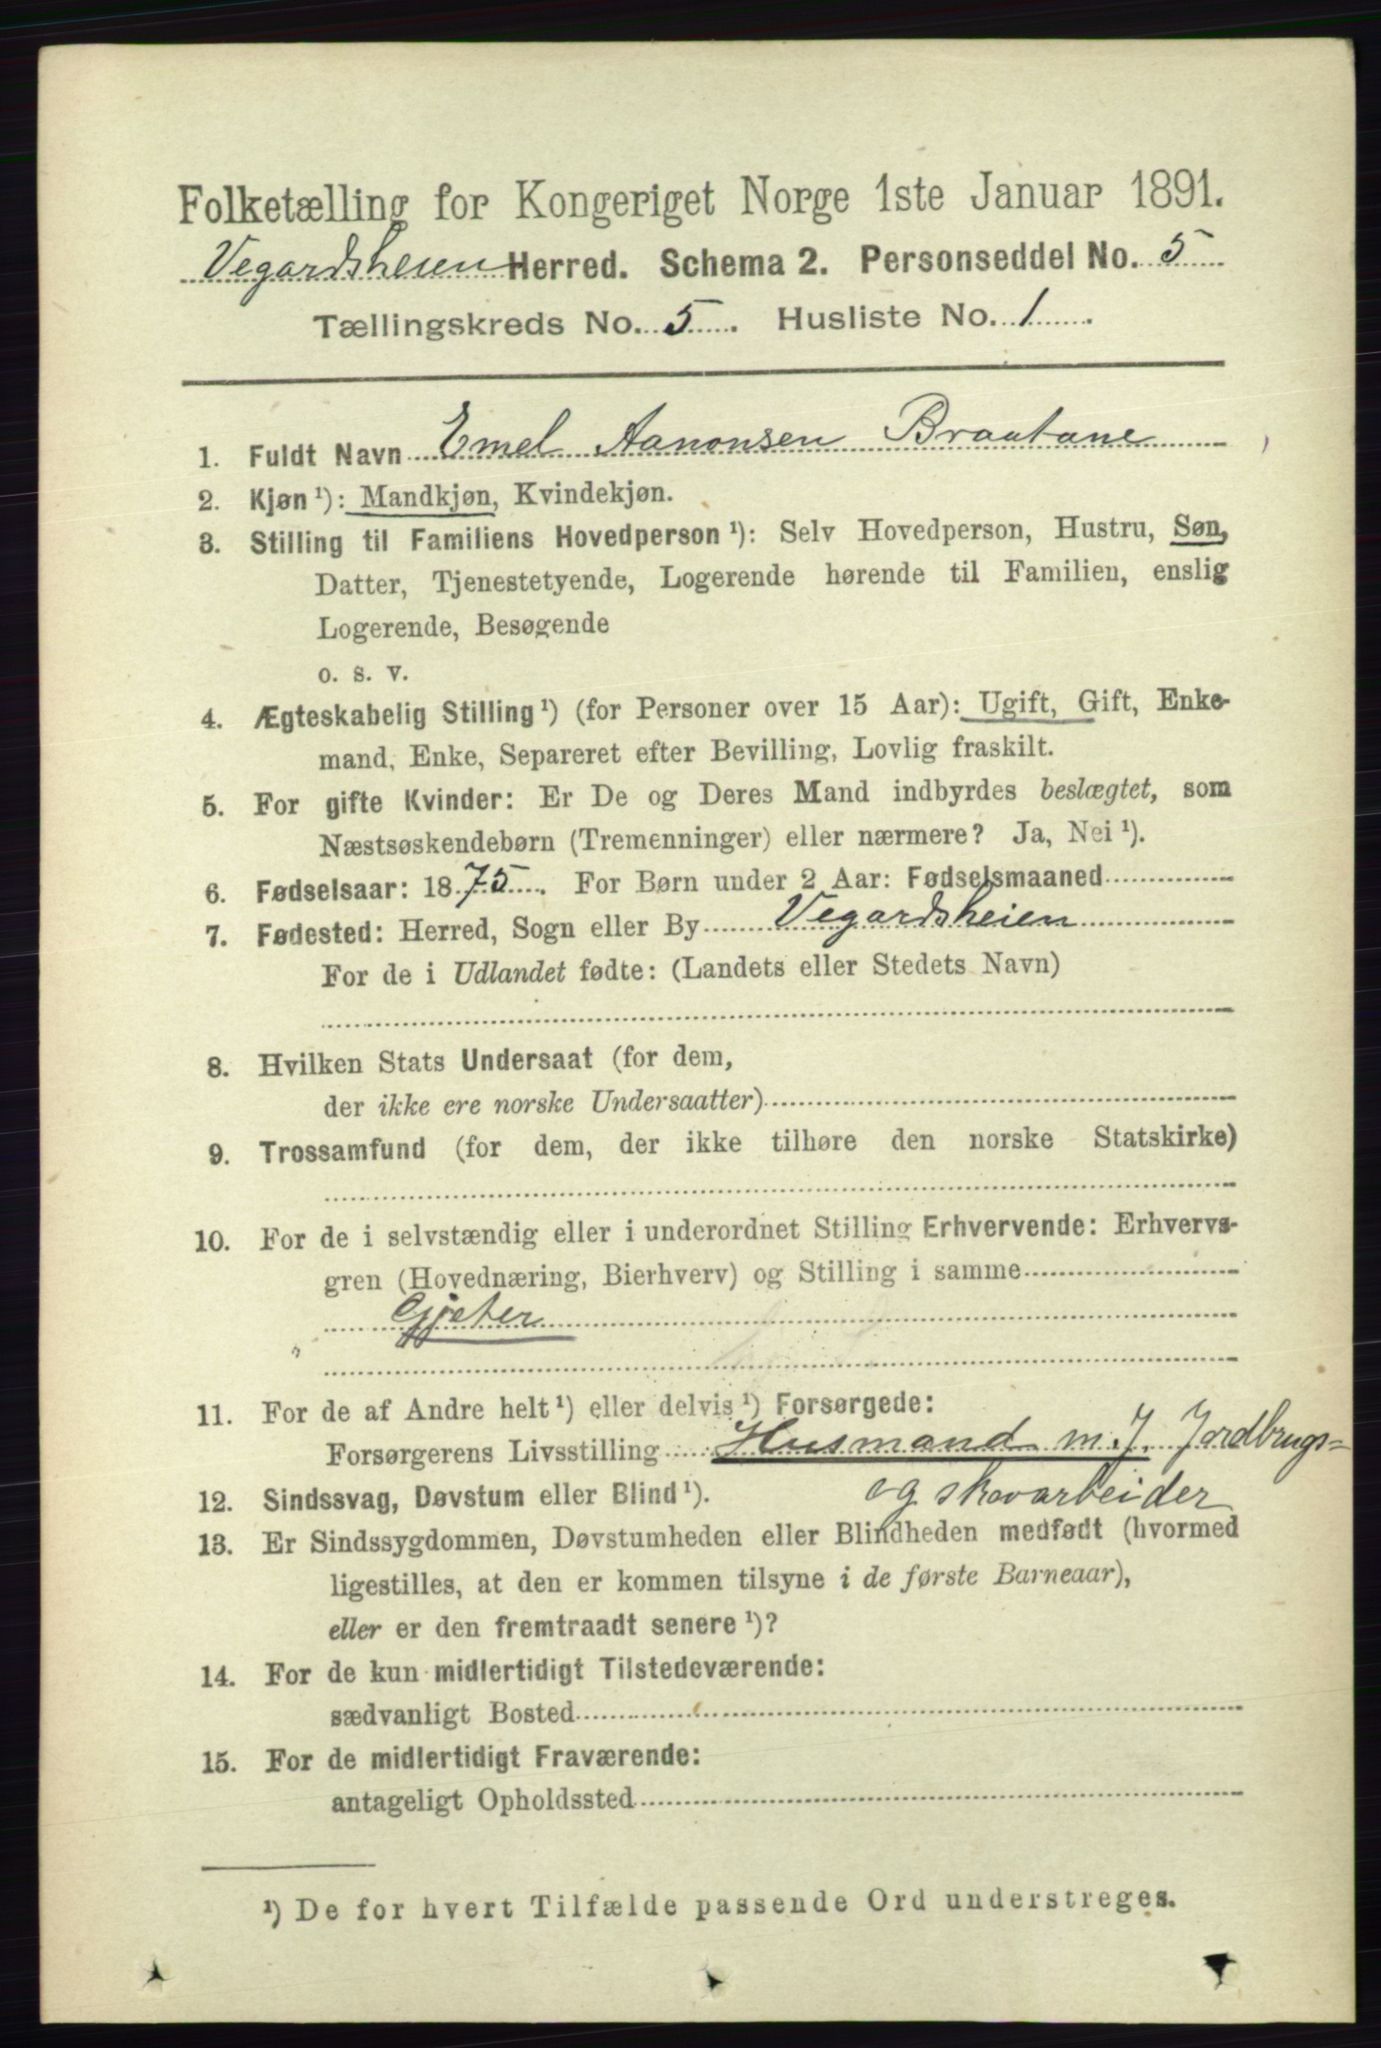 Folketælling for Kongeriget Norge 1ste Januar 1891.
Vegardsheien Herred. Schema 2. Personseddel No. 5
Tællingskreds No. 5. Husliste No. 1
1. Fuldt Navn Emel Aanonsen Braatane
2. Kjøn ¹): Mandkjøn, Kvindekjøn.
3. Stilling til Familiens Hovedperson ¹): Selv Hovedperson, Hustru, Søn,
Datter, Tjenestetyende, Logerende hørende til Familien, enslig
Logerende, Besøgende
o. s. v.
4. Ægteskabelig Stilling ¹) (for Personer over 15 Aar): Ugift, Gift, Enke-
mand, Enke, Separeret efter Bevilling, Lovlig fraskilt.
5. For gifte Kvinder: Er De og Deres Mand indbyrdes beslægtet, som
Næstsøskendebørn (Tremenninger) eller nærmere? Ja, Nei ¹).
6. Fødselsaar: 1875. For Børn under 2 Aar: Fødselsmaaned
7. Fødested: Herred, Sogn eller By Vegardsheien
For de i Udlandet fødte: (Landets eller Stedets Navn)
8. Hvilken Stats Undersaat (for dem,
der ikke ere norske Undersaatter)
9. Trossamfund (for dem, der ikke tilhøre den norske Statskirke)
10. For de i selvstændig eller i underordnet Stilling Erhvervende: Erhvervs-
gren (Hovednæring, Bierhverv) og Stilling i samme
Gjeter
"
11. For de af Andre helt ¹) eller delvis ¹) Forsørgede:
Forsørgerens Livsstilling Husmand m. J. Jordbrugs=
og skovarbeider
12. Sindssvag, Døvstum eller Blind ¹).
13. Er Sindssygdommen, Døvstumheden eller Blindheden medfødt (hvormed
ligestilles, at den er kommen tilsyne i de første Barneaar),
eller er den fremtraadt senere ¹)?
14. For de kun midlertidigt Tilstedeværende:
sædvanligt Bosted
15. For de midlertidigt Fraværende:
antageligt Opholdssted
¹) De for hvert Tilfælde passende Ord understreges.